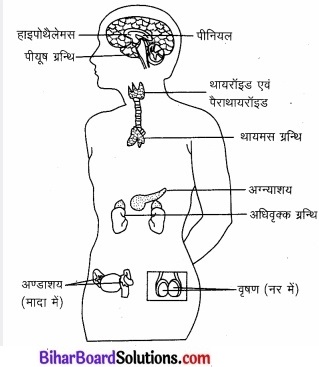 हाइपोथैलेमस
पीयूष ग्रन्थि
पीनियल
थायरॉइड एवं
पैराथायरॉइड
थायमस ग्रन्थि
अग्न्याशय
अधिवृक्क ग्रन्थि
अण्डाशय
(मादा में)
वृषण (नर में)
BiharBoardSolutions.com